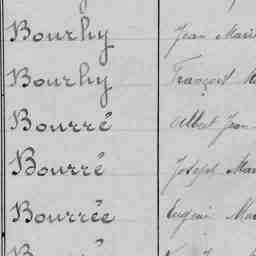 Bourhy Jean Marie
Bourhy François M
Bourré Albert Jean
Bourré Joseph Mar
Bourrée Eugène Mar